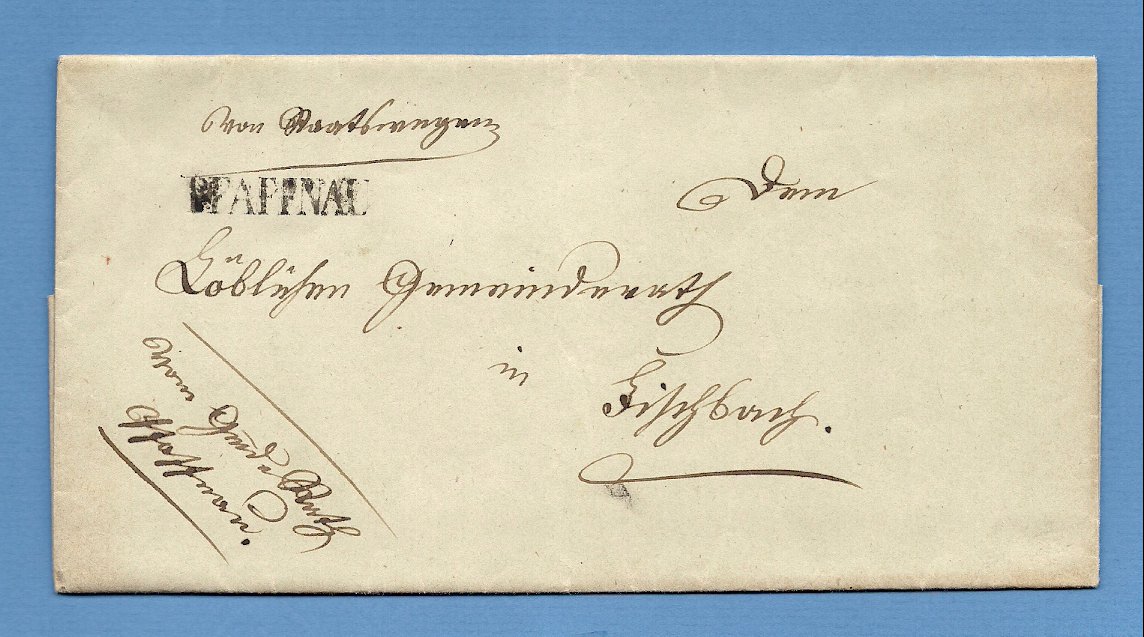 Von Staatswegen
PFAFFNAU
Dem
Löblichen Gemeinderath
in
Fischbach.
Vom Gmd: Rath
Pfaffnau.